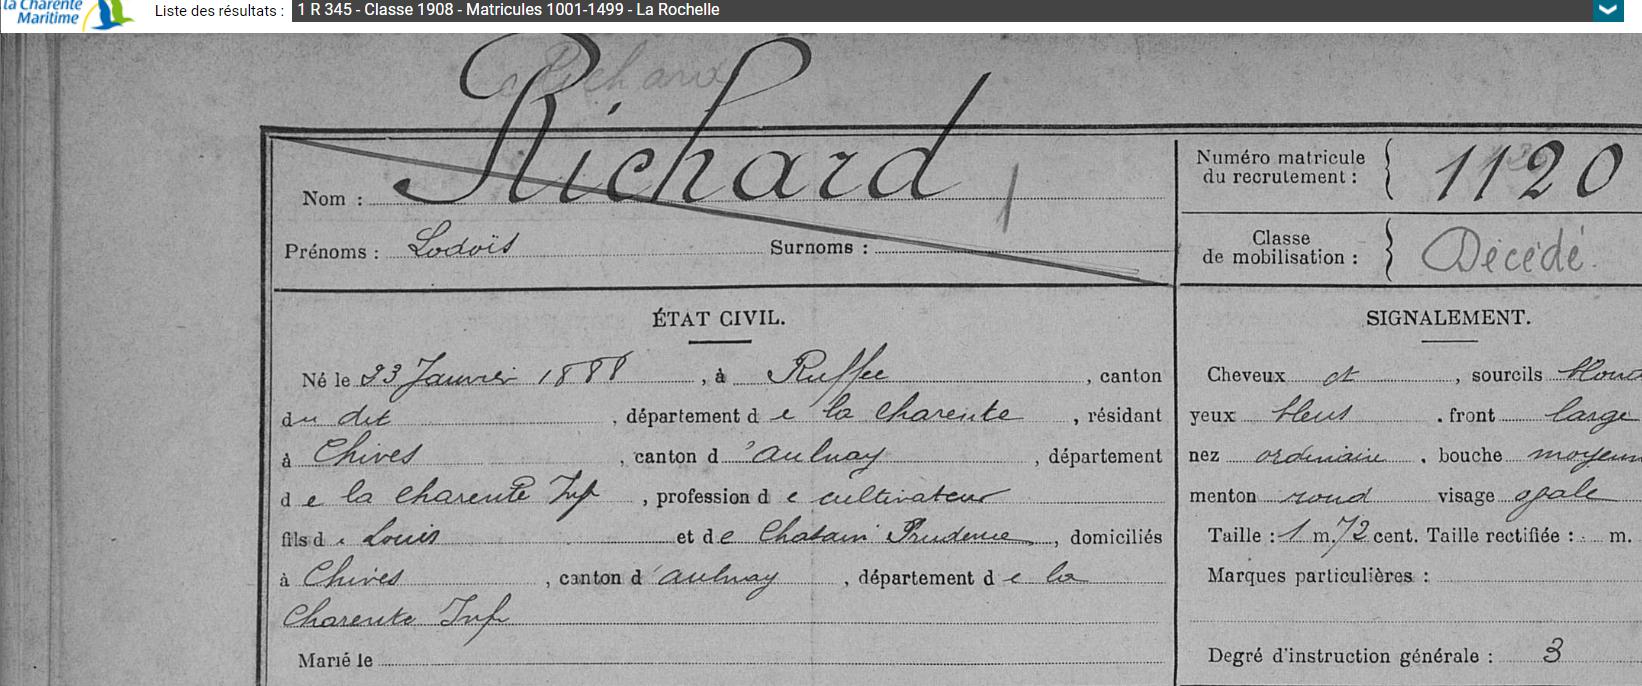 la Charente
Maritime
Liste des résultats : 1 R 345 - Classe 1908 - Matricules 1001-1499 - La Rochelle
Richard
Nom : Richard
Prénoms : Lodoïs Surnoms :
Numéro matricule du recrutement : 1120
Classe de mobilisation : Décédé.
ÉTAT CIVIL.
Né le 23 Janvier 1888, à Ruffec, canton
du dit, département de la Charente, résidant
à Chives, canton d'aulnay, département
de la Charente Inf, profession de cultivateur
fils de Louis et de Chabain Prudence, domiciliés
à Chives, canton d'aulnay, département de la
Charente Inf
Marié le
SIGNALEMENT.
Cheveux et, sourcils
yeux bleus. front large
nez ordinaire. bouche
menton rond visage ovale
Taille : 1 m. 72 cent. Taille rectifiée : m.
Marques particulières :
Degré d'instruction générale : 3